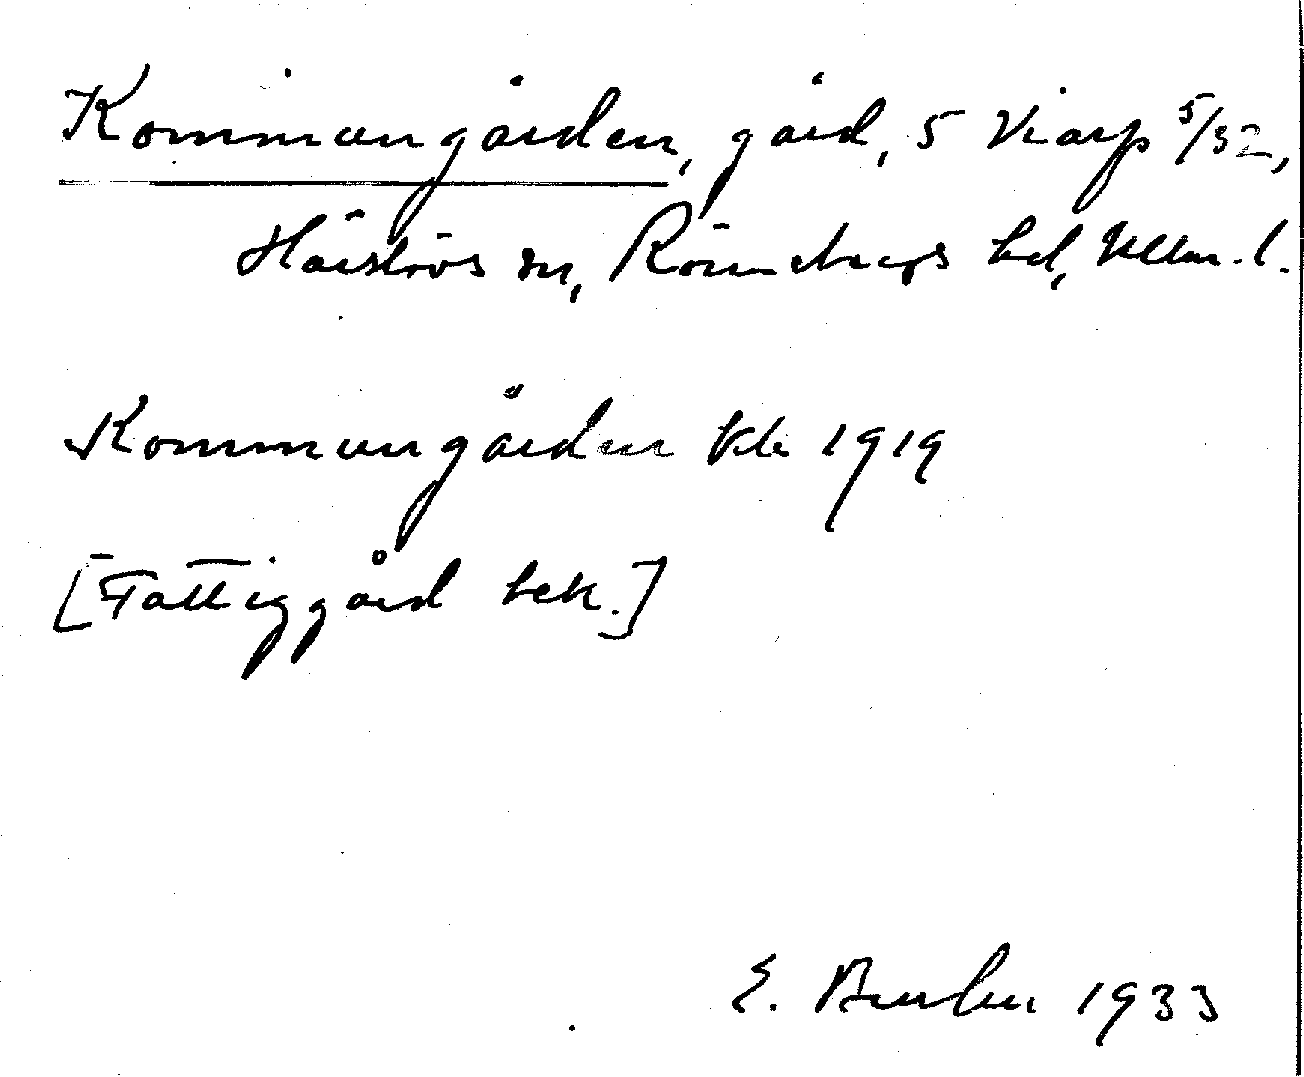 Kommungården, gård, 5 Viarp 5/32,
Härslövs sn, Rönnebergs hd, Mlm. l.
Kommungården Kk 1919
[Fattiggård bek.]
E. 1933